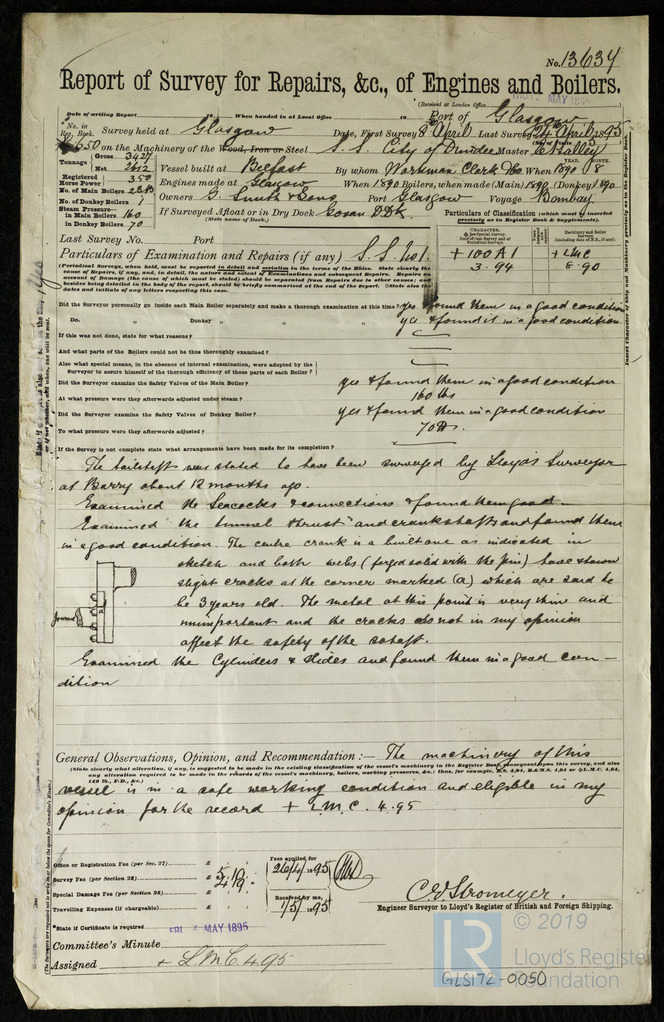 No. 13634
Report of Survey for Repairs, &c., of Engines and Boilers.
(Received at London Office
Date of writing Report When handed in at Local Office Port of Glasgow
No. in Reg. Book. Survey held at Glasgow Date, First Survey 8 April Last Survey 24 April 1895
650 on the Machinery of the Wood, Iron or Steel S. S. City of Dundee Master Halley
Tonnage Gross 3427
Net 2612
Vessel built at Belfast By whom Workman Clark &Co When 1890 8
YEAR. MONTH.
Registered Horse Power 350
Engines made at Glasgow When 1890 Boilers, when made (Main) 1890 (Donkey) 1890
No. of Main Boilers
No. of Donkey Boilers 1
Owners G. Smith & Sons Port Glasgow Voyage Bombay
Steam Pressure in Main Boilers 160
in Donkey Boilers 70
If Surveyed Afloat or in Dry Dock Govan DDk
(State name of Dock.)
Particulars of Classification (which must be inserted precisely as in Register Book & Supplements).
Last Survey No. Port
Particulars of Examination and Repairs (if any) S. S. No 1.
+ 100 A 1
3. 94
+ LMC
8. 90
Did the Surveyor personally go inside each Main Boiler separately and make a thorough examination at this time? yes found them in a good condition
Do. " Donkey " " " yes & found it in a good condition
If this was not done, state for what reasons?
And what parts of the Boilers could not be thus thoroughly examined?
Also what special means, in the absence of internal examination, were adopted by the
Surveyor to assure himself of the thorough efficiency of those parts of each Boiler?
Did the Surveyor examine the Safety Valves of the Main Boiler? yes & found them in a good condition
At what pressure were they afterwards adjusted under steam? 160 lbs
Did the Surveyor examine the Safety Valves of Donkey Boiler? yes & found them in a good condition
To what pressure were they afterwards adjusted? 70 lbs.
If the Survey is not complete state what arrangements have been made for its completion?
The tailshaft was stated to have been surveyed by Lloyds Surveyor
at Barry about 12 months ago.
Examined the Seacocks & connections & found them good.
Examined the tunnel thrust and crankshafts and found them
in a good condition. The centre crank is a built one as indicated in
sketch and both webs (forged solid with the pin) have shown
slight cracks at the corner marked (a) which are said to
be 3 years old. The metal at this point is very thin and
unimportant and the cracks do not in my opinion
affect the safety of the shaft.
Journal
a
Examined the Cylinders & Slides and found them in a good con-
dition
General Observations, Opinion, and Recommendation :— The machinery of this
(State clearly what alteration, if any, is suggested to be made in the existing classification of the vessel's machinery in the Register Book, consequent upon this survey, and also
any alteration required to be made in the records of the vessel's machinery, boilers, working pressures, &c.; thus, for example, B.S. 4,94, B.&M.S. 4,94 or +L.M.C. 4,94,
140 lb., F.D., &c.)
vessel is in a safe working condition and eligible in my
opinion for the record + L.M.C. 4.95
Office or Registration Fee (per Sec. 27) £
Survey Fee (per Section 28) £
Special Damage Fee (per Section 28) £
Travelling Expenses (if chargeable) £
Fees applied for
26/4/1895
Received by me,
1/5/1895
C. E. Stromeyer.
Engineer Surveyor to Lloyd's Register of British and Foreign Shipping.
*State if Certificate is required
FRI MAY 1895
Committee's Minute
Assigned + L.M.C. 4.95
© 2019
LR
Lloyd's Register
Foundation
GLS172-0050